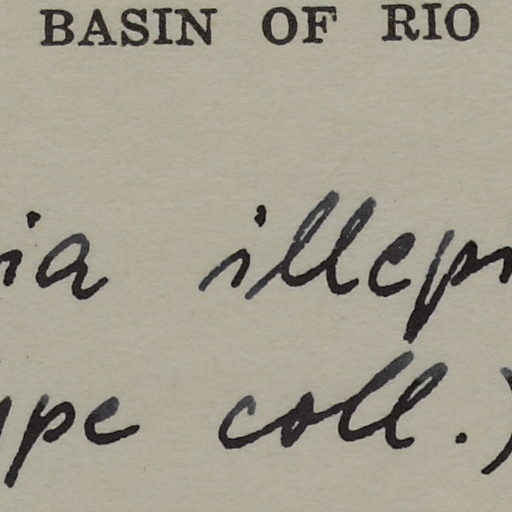 BASIN OF RIO
ia illep
ype coll.)